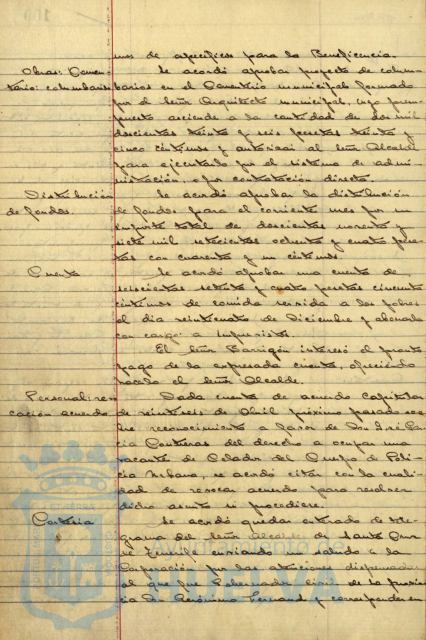 mos de específicos para la Beneficencia.
Obras: Cemen- Se acordó aprobar proyecto de colum-
terio: columbarios barios en el Cementerio municipal formado
por el Señor Arquitecto municipal, cuyo presu-
puesto asciende a la cantidad de dos mil
doscientas treinta y seis pesetas treinta y
cinco céntimos y autorizar al Señor Alcalde
para ejecutarlo por el sistema de admi-
nistración, o por contratación directa.
Distribución Se acordó aprobar la distribución
de fondos. de fondos para el corriente mes por un
importe total de doscientas noventa y
siete mil setecientas ochenta y cuatro pese-
tas con cuarenta y un céntimos.
Cuenta Se acordó aprobar una cuenta de
seiscientas setenta y cuatro pesetas cincuenta
céntimos de comida servida a los pobres
el día veinticuatro de Diciembre y abonarla
con cargo a Imprevistos.
El Señor Barrigón interesó el pronto
pago de la expresada cuenta, ofreciendo
hacerlo el Señor Alcalde.
Personal: revo- Dada cuenta de acuerdo capitular
cación acuerdo de veintiseis de Abril próximo pasado so-
bre reconocimiento a favor de Don José Gar-
cia Contreras del derecho a ocupar una
vacante de Celador del Cuerpo de Poli-
cía Urbana, se acordó citar con la cuali-
dad de revocar acuerdo para resolver
dicho asunto si procediere.
Cortesía Se acordó quedar enterado de tele-
grama del Señor Alcalde de Santa Cruz
de Tenerife enviando saludo a la
Corporación por las atenciones dispensadas
al que fue Gobernador Civil de la provin-
cia Don Gerónimo Fernaud y corresponder en